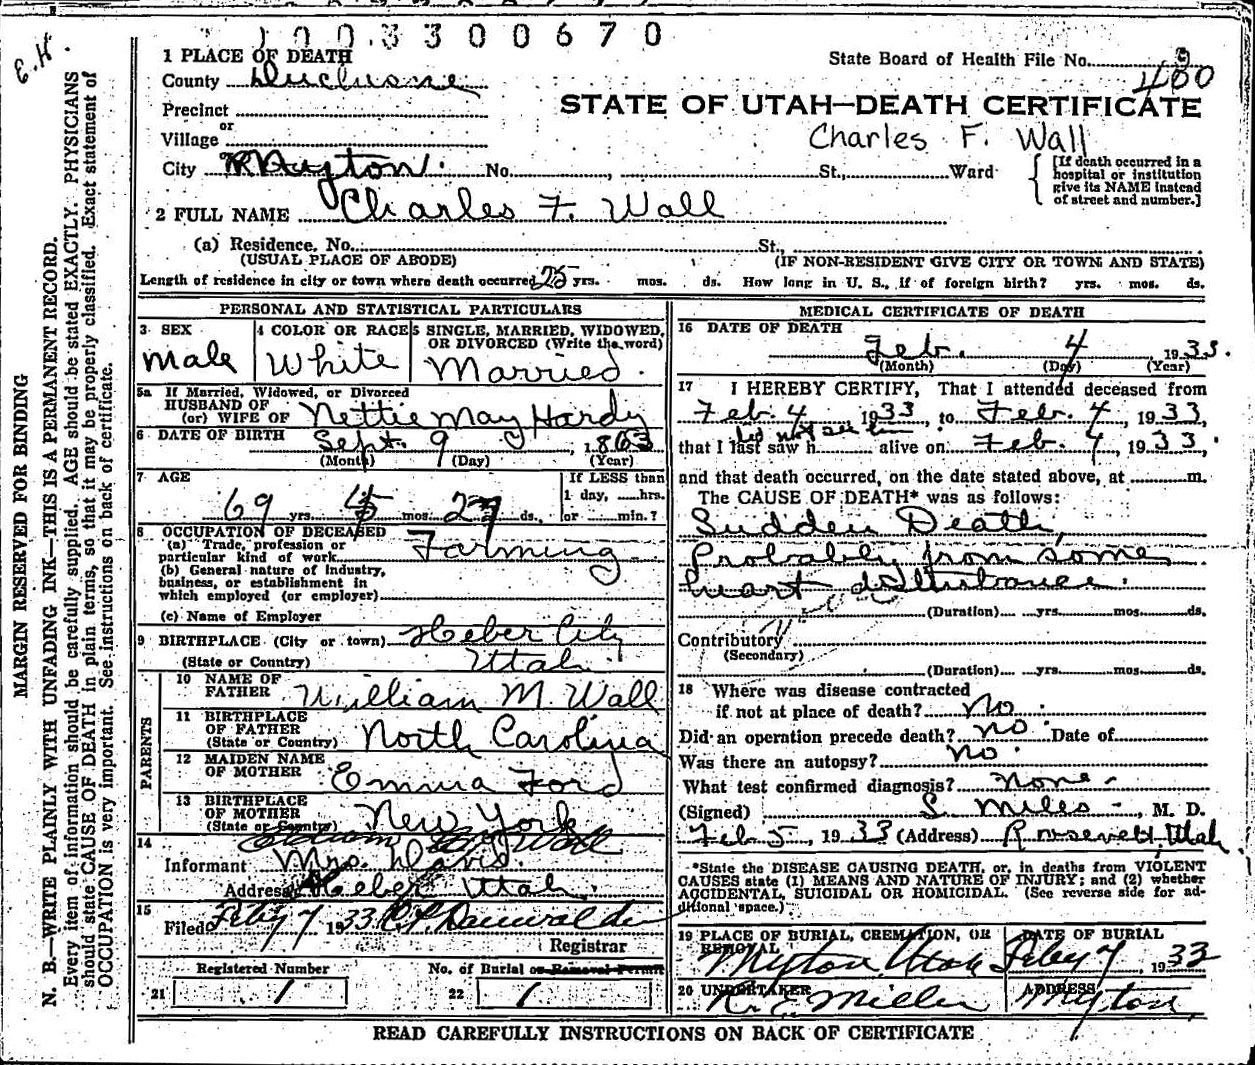 E.H.
1003300670
1 PLACE OF DEATH
State Board of Health File No. 3
400
County Duchesne
Precinct
STATE OF UTAH—DEATH CERTIFICATE
or
Village
Charles F. Wall
City Myton. No. , St., Ward
[If death occurred in a hospital or institution give its NAME instead of street and number.]
2 FULL NAME Charles F. Wall
(a) Residence, No. St.,
(USUAL PLACE OF ABODE) (IF NON-RESIDENT GIVE CITY OR TOWN AND STATE)
Length of residence in city or town where death occurred 25 yrs. mos. ds. How long in U. S., if of foreign birth? yrs. mos. ds.
PERSONAL AND STATISTICAL PARTICULARS
3 SEX Male
4 COLOR OR RACE White
5 SINGLE, MARRIED, WIDOWED, OR DIVORCED (Write the word) Married.
5a If Married, Widowed, or Divorced
HUSBAND OF
(or) WIFE OF Nettie May Hardy
6 DATE OF BIRTH Sept. 9, 1863
(Month) (Day) (Year)
7 AGE
If LESS than
1 day, hrs.
69 yrs. mos. ds., or min.?
8 OCCUPATION OF DECEASED
(a) Trade, profession or
particular kind of work Farming
(b) General nature of Industry,
business, or establishment in
which employed (or employer)
(c) Name of Employer
9 BIRTHPLACE (City or town) Heber City
(State or Country) Utah.
PARENTS
10 NAME OF FATHER William M. Wall
11 BIRTHPLACE OF FATHER (State or Country) North Carolina
12 MAIDEN NAME OF MOTHER Emma Ford
13 BIRTHPLACE OF MOTHER (State or Country) New York
14
Informant Mrs. Davis.
Address Heber Utah.
15
Filed Feby 7 1933
Registrar
Registered Number No. of Burial or Removal Permit
21 1 22 1
MEDICAL CERTIFICATE OF DEATH
16 DATE OF DEATH
Feb. 4, 1933.
(Month) (Day) (Year)
17 I HEREBY CERTIFY, That I attended deceased from
Feb. 4, 1933, to Feb. 4, 1933,
did not see him
that I last saw h alive on Feb. 4 1933.
and that death occurred, on the date stated above, at m.
The CAUSE OF DEATH* was as follows:
Sudden Death,
Probably from some
heart disturbance.
(Duration) yrs. mos. ds.
Contributory
(Secondary)
(Duration) yrs. mos. ds.
18 Where was disease contracted
if not at place of death? No.
Did an operation precede death? no Date of
Was there an autopsy? No.
What test confirmed diagnosis? None.
(Signed) S. Miles, M. D.
Feb 5, 1933 (Address) Roosevelt, Utah.
*State the DISEASE CAUSING DEATH, or, in deaths from VIOLENT
CAUSES state (1) MEANS AND NATURE OF INJURY; and (2) whether
ACCIDENTAL, SUICIDAL OR HOMICIDAL. (See reverse side for ad-
ditional space.)
19 PLACE OF BURIAL, CREMATION, OR REMOVAL Myton Utah
DATE OF BURIAL Feby 7, 1933
20 UNDERTAKER R. E. Miller
ADDRESS Myton,
READ CAREFULLY INSTRUCTIONS ON BACK OF CERTIFICATE
MARGIN RESERVED FOR BINDING
N. B.—WRITE PLAINLY WITH UNFADING INK—THIS IS A PERMANENT RECORD.
Every item of information should be carefully supplied. AGE should be stated EXACTLY. PHYSICIANS
should state CAUSE OF DEATH in plain terms, so that it may be properly classified. Exact statement of
OCCUPATION is very important. See instructions on back of certificate.